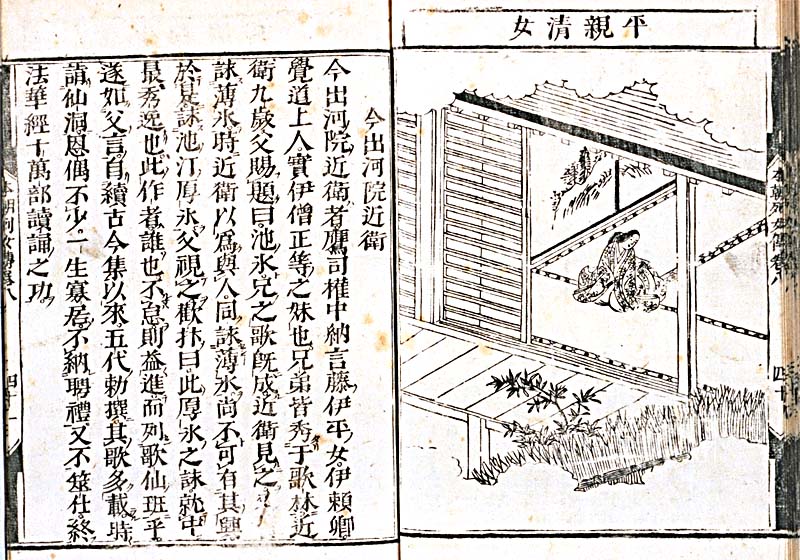 平親清女
本朝列女傳卷八
四十
今出河院近衛
今出河院近衛者鷹司權中納言藤伊平女伊賴卿
覺道上人實伊僧正等之妹也兄弟皆秀于歌林近
衛九歲父賜題曰池氷兄之歌既成近衛見之
詠薄氷時近衛以爲與人同詠薄氷尚不可有其興
於是詠池汀厚氷父視之歡抃曰此厚氷之詠就中
最秀逸也此作者誰也不怠則益進而列歌仙班乎
遂如父言自續古今集以來五代勅撰其歌多載時
請仙洞恩偶不少一生寡居不納聘禮又不筮仕終
法華經十萬部讀誦之功
本朝列女傳卷八